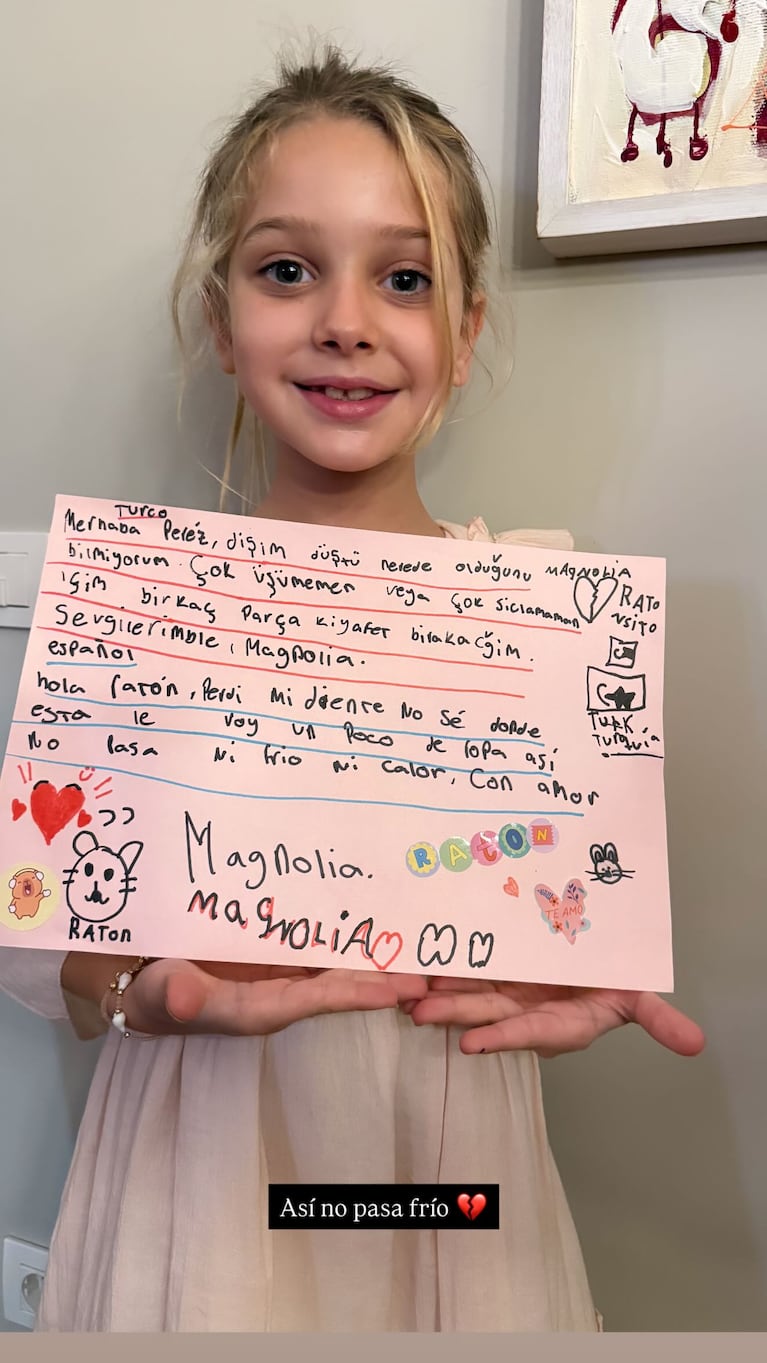 TURCO
Merhaba Peréz, dişim düştü nerede olduğunu
bilmiyorum. Çok üşümemen veya çok siclamaman
için birkaç parça kiyafet birakacğim.
Sevgilerimble, Magnolia.
español
hola ratón, Perdi mi diente No sé donde
esta le voy un poco de ropa así
No pasa ni frio ni calor, Con amor
Magnolia.
MAGNOLIA
MAGNOLIA
RATO
NSITO
TURK
TURQUÍA
RATON
RATON
TE AMO
Así no pasa frío 💔